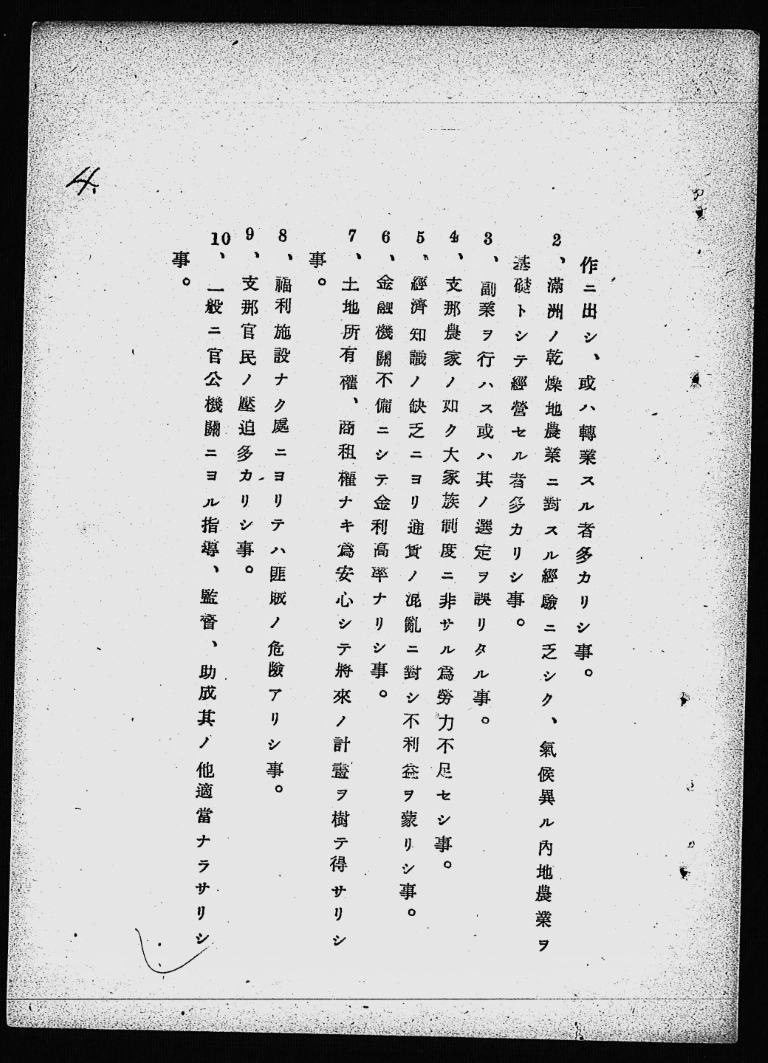 4.
作ニ出シ、或ハ轉業スル者多カリシ事。
2、滿洲ノ乾燥地農業ニ對スル經驗ニ乏シク、氣候異ル內地農業ヲ
基礎トシテ經營セル者多カリシ事。
3、副業ヲ行ハス或ハ其ノ選定ヲ誤リタル事。
4、支那農家ノ如ク大家族制度ニ非サル爲勞力不足セシ事。
5、經濟知識ノ缺乏ニヨリ通貨ノ混亂ニ對シ不利益ヲ蒙リシ事。
6、金融機關不備ニシテ金利高率ナリシ事。
7、土地所有權、商租權ナキ爲安心シテ將來ノ計畫ヲ樹テ得サリシ
事。
8、福利施設ナク處ニヨリテハ匪賊ノ危險アリシ事。
9、支那官民ノ壓迫多カリシ事。
10、一般ニ官公機關ニヨル指導、監督、助成其ノ他適當ナラサリシ
事。